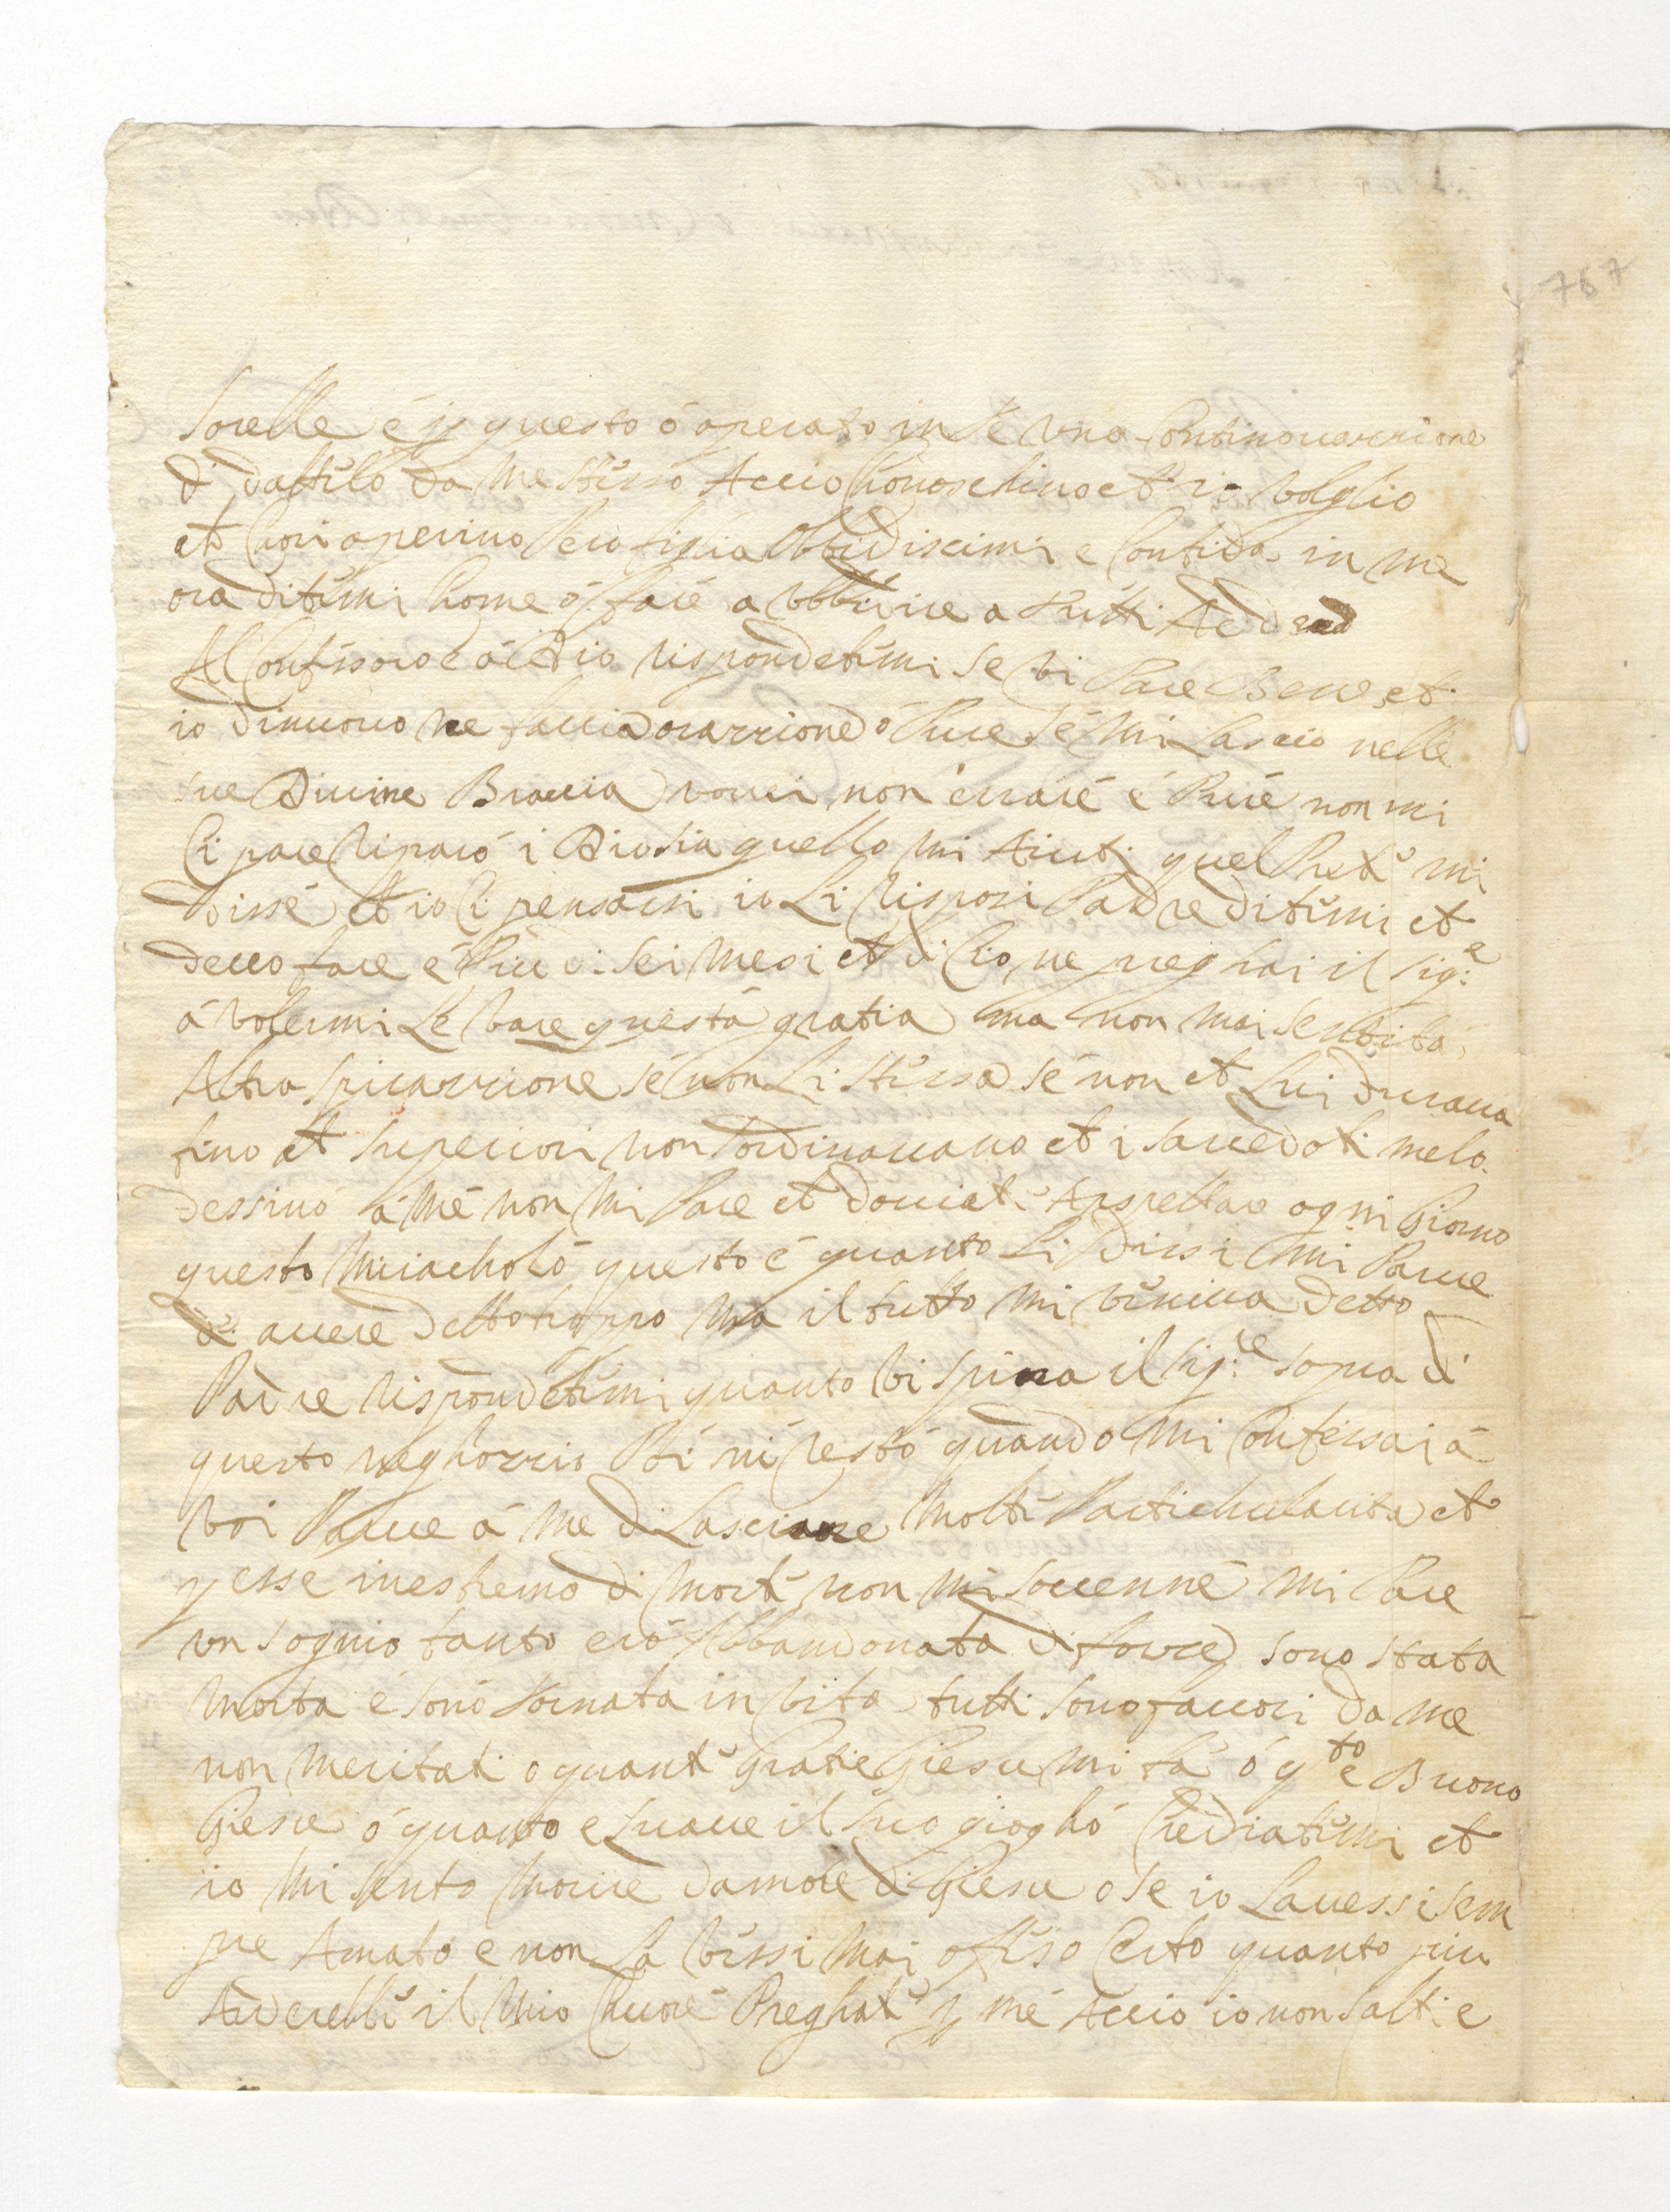 767
Sorelle é p questo ó operato in te una Continouazzione
di da me stesso Accio Conoschino et io volglio
et Cosi operino Pero figlia Obbidiscimi e Confida in me
ora ditemi Come ó fare a Ubbidire a tutti
Al Confissoro e á Dio rispondetemi se vi Pare Bene et
io dinuovo ne faccia orazzione ó Pure se mi Lascio nelle
sue Divine Braccia vorrei non errare é Pure non mi
Ci pare riparo i Dio sia quello mi Aiuti quel Prete mi
disse et io Ci pensassi io Li risposi Padre ditemi et
devo fare é Piu di sei mesi et di Cio ne preghai il sig:re
á volermi Levare questa gratia ma non mai sentita
Altra spirazzione se non Li Stessa se non et Lui durava
fino et Superiori non Lordinavano et i sacerdoti melo
dessino á me non mi Pare et doviate Aspettare ogni Giorno
questo Mirachols questo é quanto Li dissi mi Parve
di avere detto troppo Ma il tutto mi veniva detto
Padre rispondetemi quanto vi spira il sig:re sopra di
questo neghozzio Poi ni resto quando mi Confessai á
voi Parve á me di Lasciare molti Partichularita et
p esse in estremo di morte non mi sovenne mi Pare
un sognio tanto ero Abbandonata di forze sono stata
morta é sono tornata in vita tutti sono favori da me
non meritati o quante Gratie Giesu mi fá ó q.to e Buono
Giesu ó quanto e suave il suo giogho Crediatemi et
io mi sento morire damore di Giesu o se io Lavessi sem
pre Amato e non La vessi mai offeso Certo quanto piu
Arderebbe il Mio Cuore Preghate p me Accio io non salti e